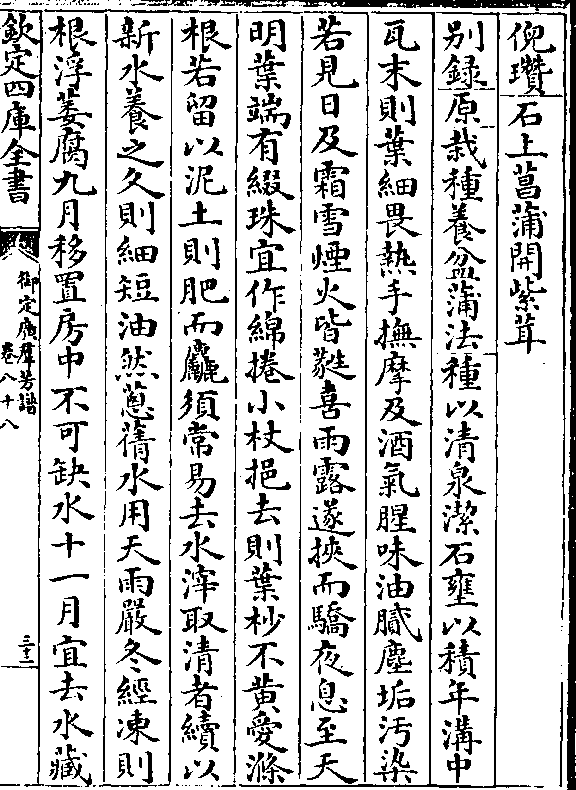 倪瓚石上菖蒲開紫茸
别録原栽種養盆蒲法種以清泉潔石壅以積年溝中
瓦末則葉細畏熱手撫摩及酒氣腥味油膩塵垢汚染
若見日及霜雪煙火皆蕤喜雨露遂挾而驕夜息至天
明葉端有綴珠宜作綿捲小杖挹去則葉杪不黄愛滌
根若留以泥土則肥而麤須常易去水滓取清者續以
新水養之久則細短油然蔥蒨水用天雨嚴冬經凍則
根浮萎腐九月移置房中不可缺水十一月宜去水藏
欽定四庫全書
御定廣羣芳譜
卷八十八
三十二